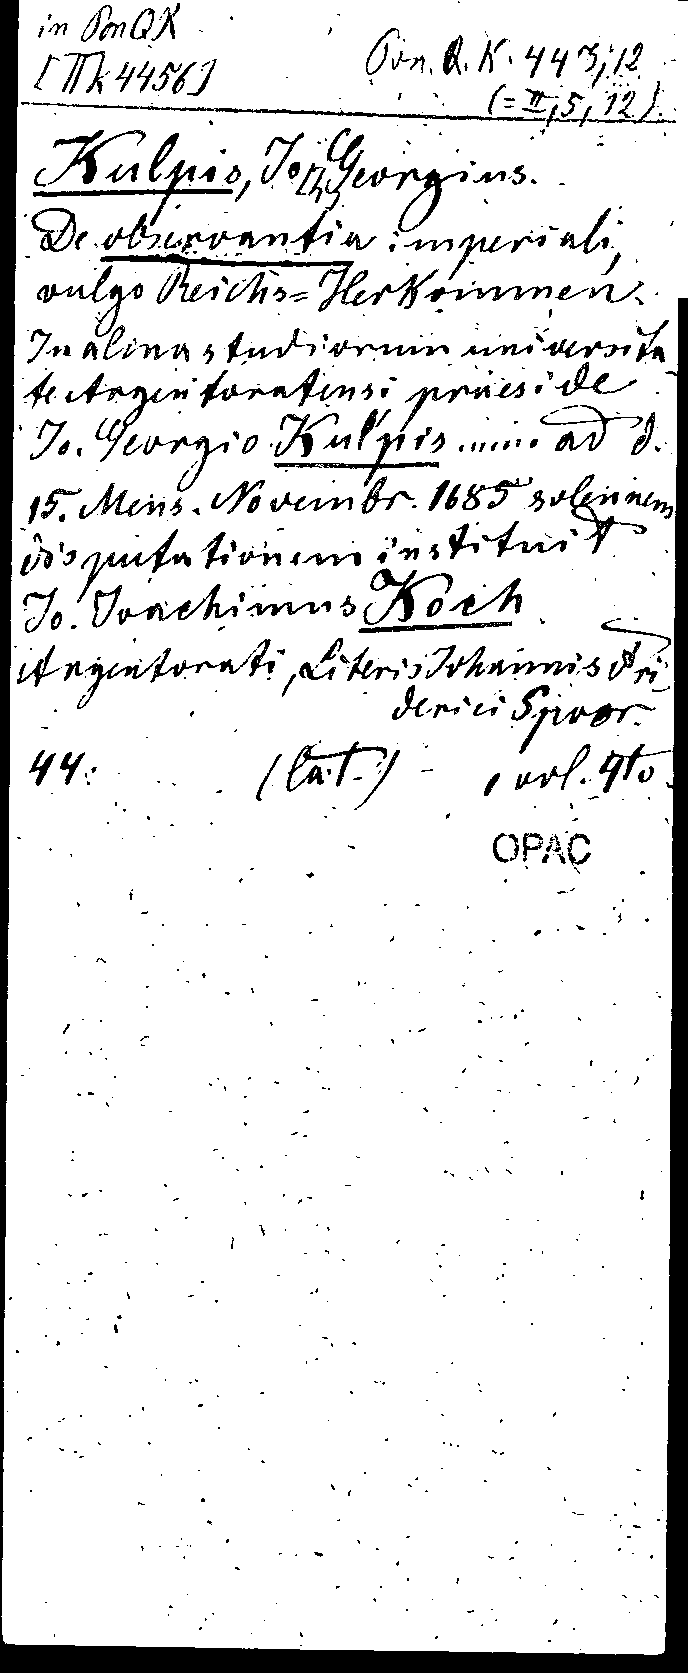 in Pon QK
[II k 4456]
Pon. Q. K. 443,12
(= II, 5, 12).
Kulpis, Jo. Georgius.
De observantia imperiali,
vulgo Reichs=Herkommen.
In alma studiorum universita
te Argentoratensi praeside
Jo. Georgio Kulpis ...... ad d.
15. Mens. Novembr. 1685 solennem
disputationem instituit
Jo. Joachimus Koch
Argentorati, Literis Johannis Fri
derici Spoor.
44. (Cat.) - 1 vol. 4to.
OPAC